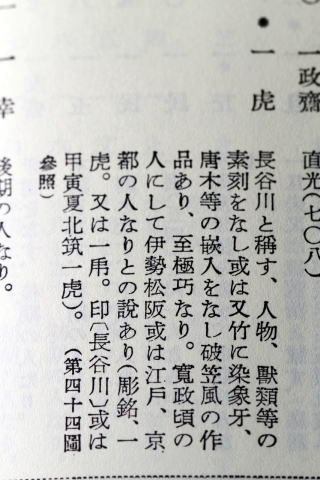 一政齋　直光(七〇八)
●一虎
長谷川と稱す、人物、獸類等の
素刻をなし或は又竹に染象牙、
唐木等の嵌入をなし破笠風の作
品あり、至極巧なり。寬政頃の
人にして伊勢松阪或は江戸、京
都の人なりとの說あり(彫銘、一
虎。又は一乕。印〔長谷川〕或は
甲寅夏北筑一虎)。　(第四十四圖
參照)
一幸　後期の人なり。